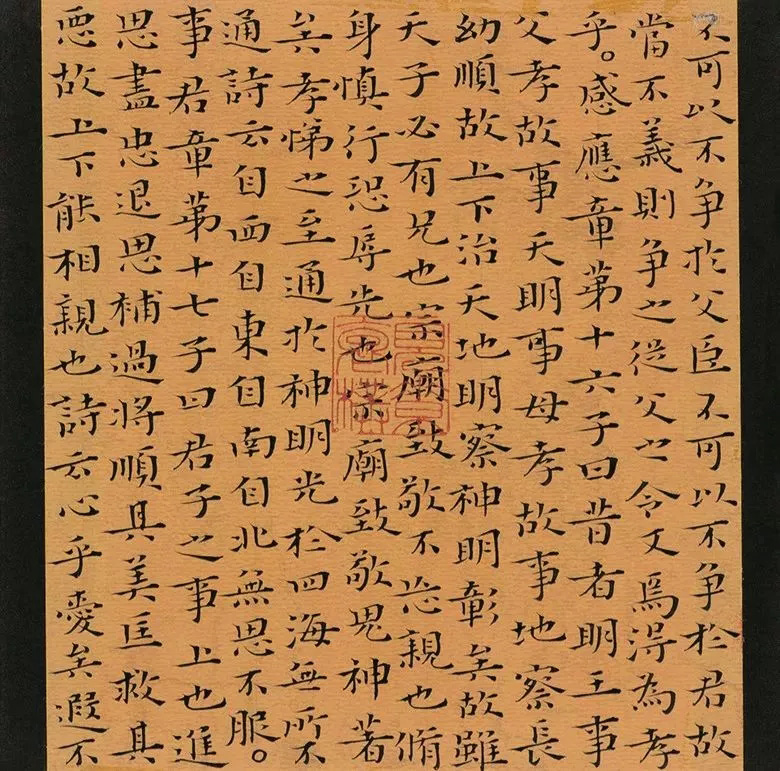 不可以不争於父臣不可以不争於君故
當不義則争之從父之令又焉得為孝
乎。感應章第十六子曰昔者明王事
父孝故事天明事母孝故事地察長
幼順故上下治天地明察神明彰矣故雖
天子必有兄也宗廟致敬不忘親也脩
身慎行恐辱先也宗廟致敬鬼神著
矣孝悌之至通於神明光於四海無所不
通詩云自西自東自南自北無思不服。
事君章第十七子曰君子之事上也進
思盡忠退思補過將順其美匡救其
惡故上下能相親也詩云心乎愛矣遐不